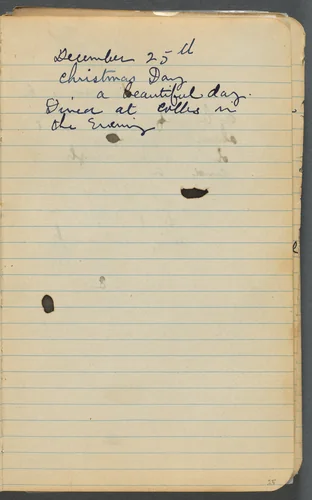 December 25th
Christmas Day
a beautiful day.
Dinner at in
the Evening
28